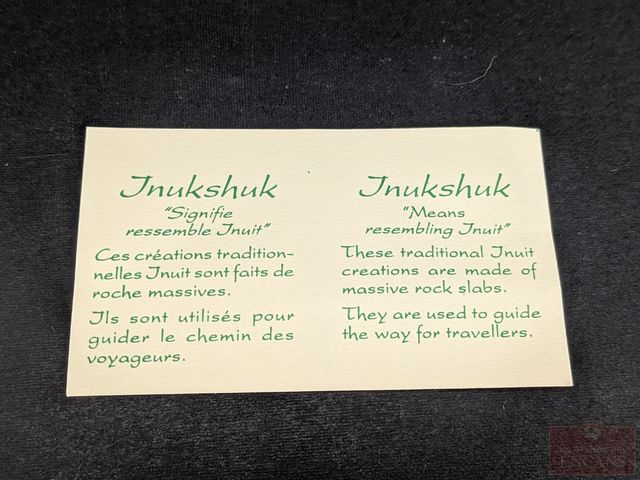 Inukshuk
"Signifie
ressemble Inuit"
Ces créations tradition-
nelles Inuit sont faits de
roche massives.
Ils sont utilisés pour
guider le chemin des
voyageurs.
Inukshuk
"Means
resembling Inuit"
These traditional Inuit
creations are made of
massive rock slabs.
They are used to guide
the way for travellers.